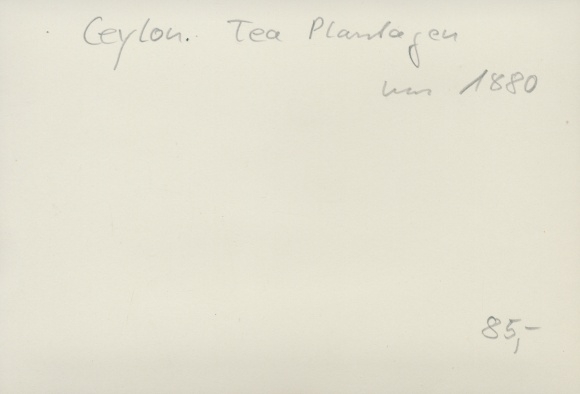 Ceylon. Tea Plantagen
um 1880
85,-